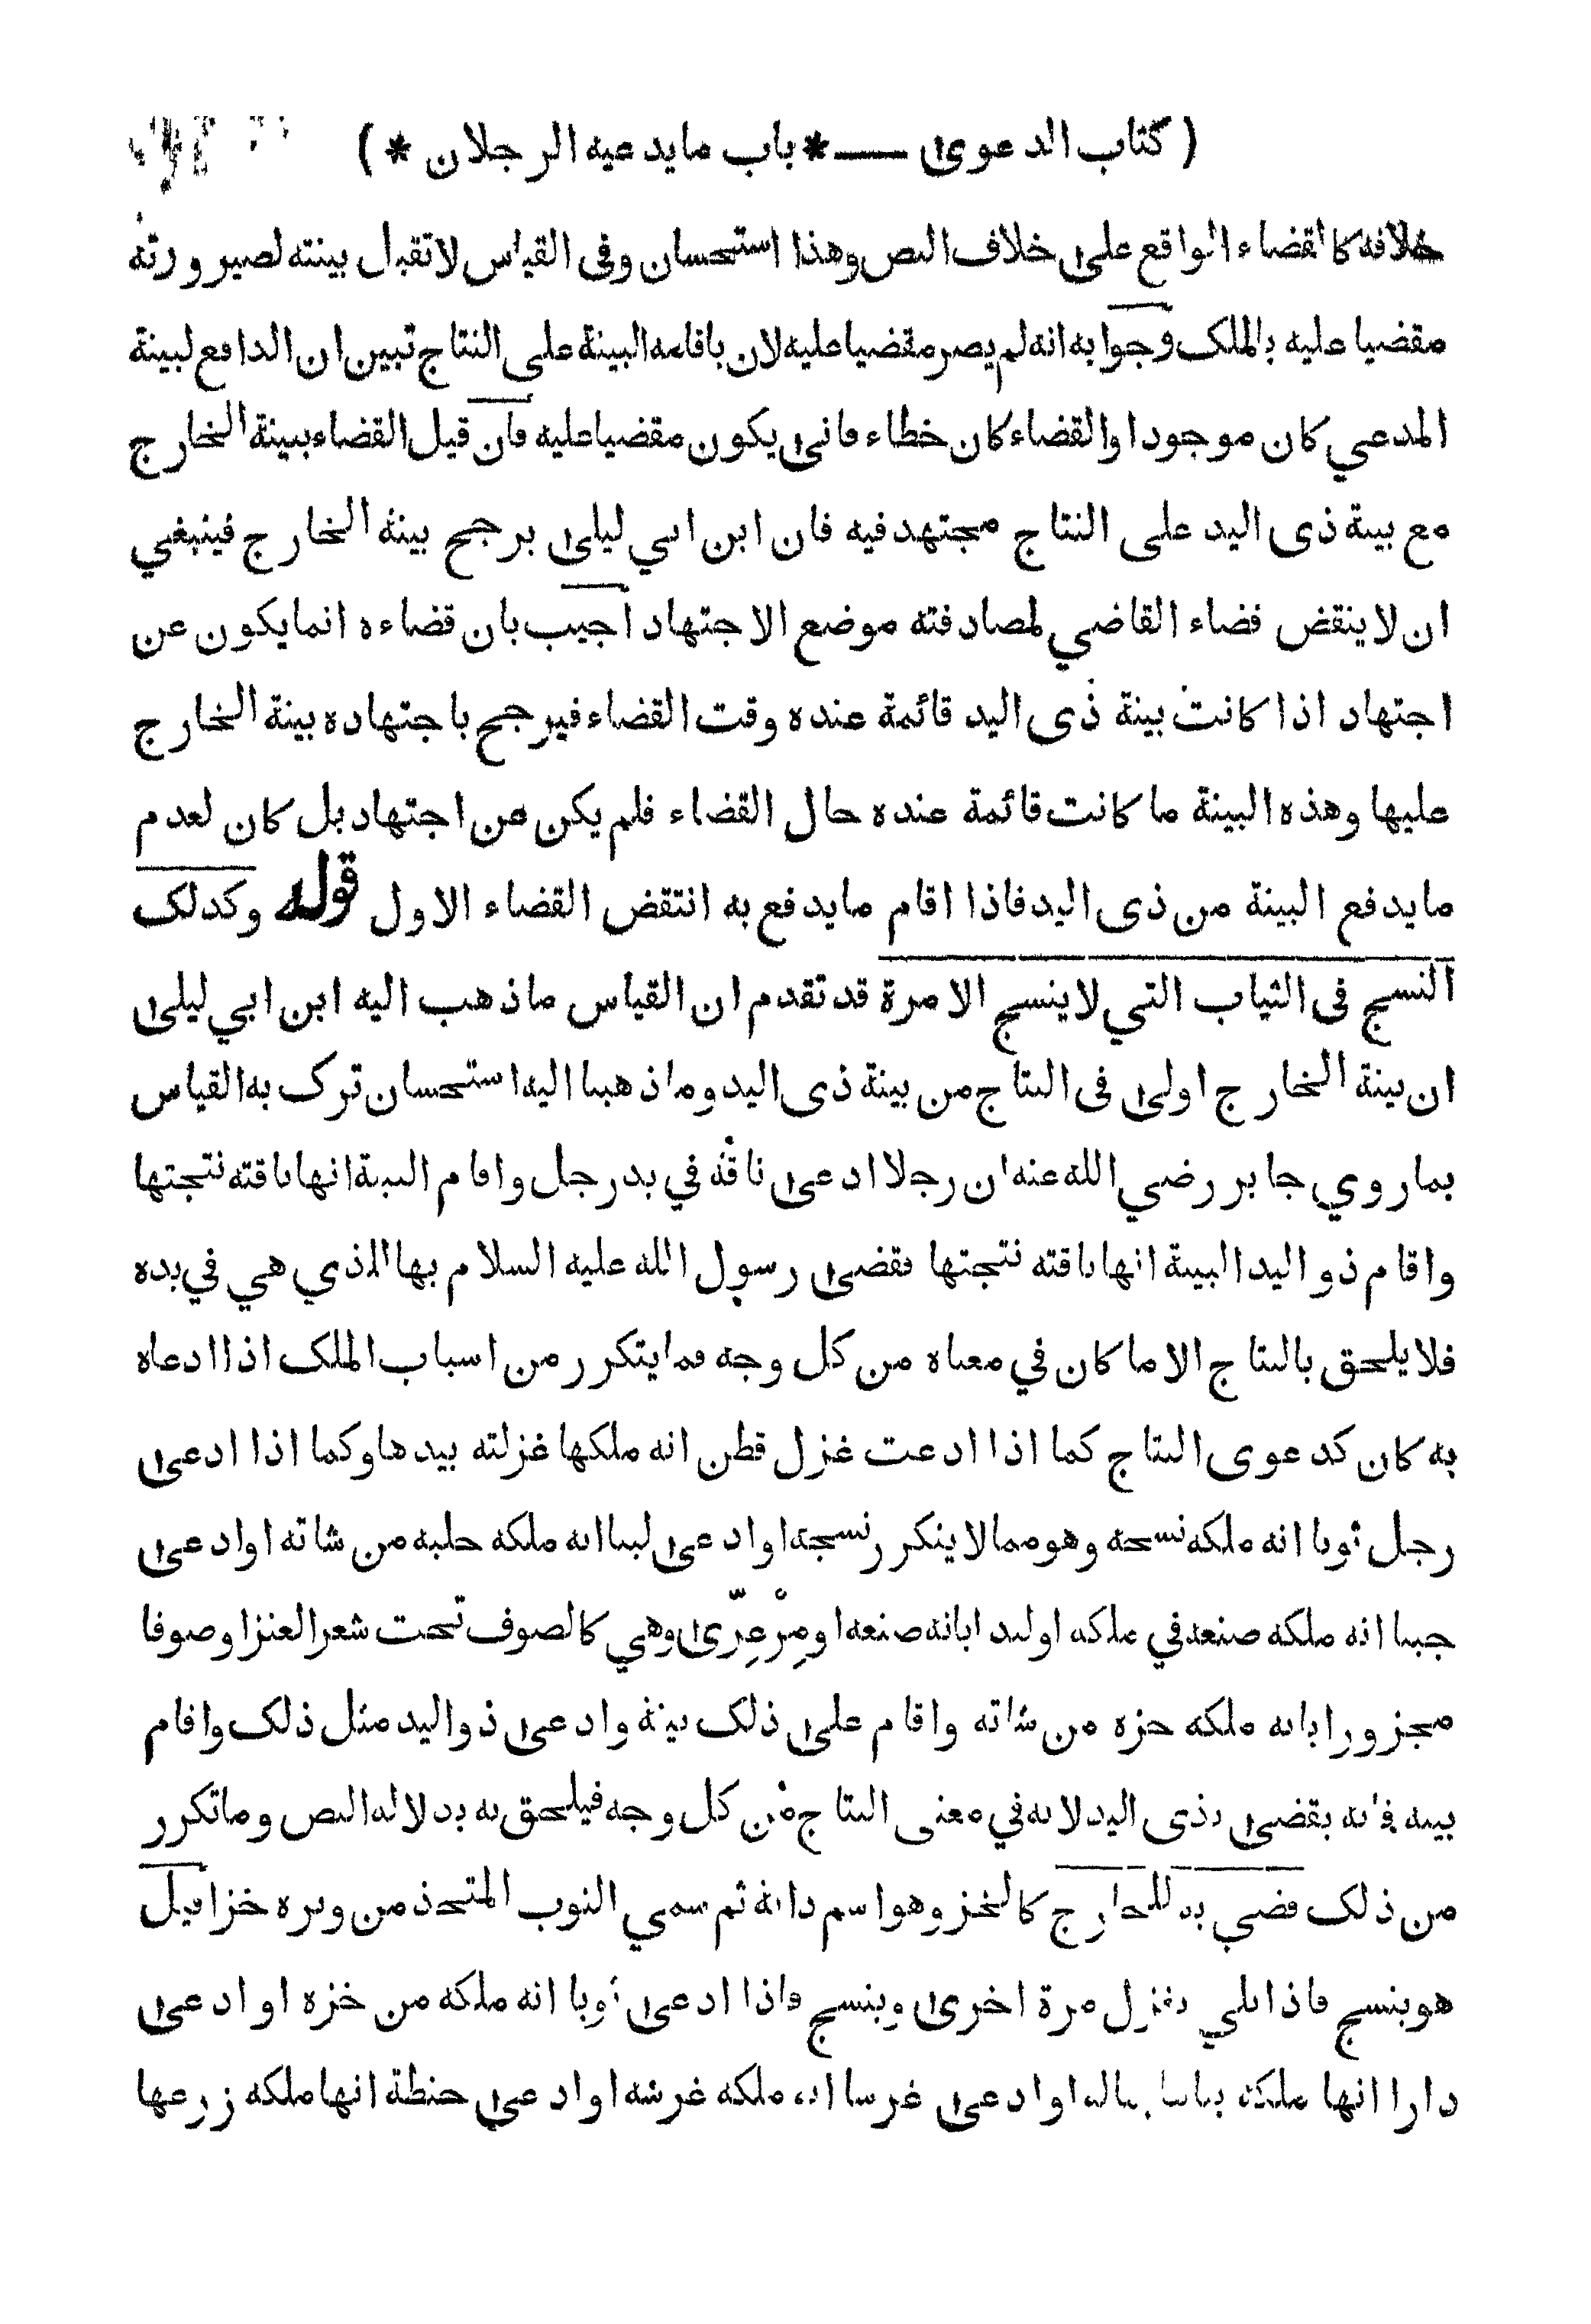 ( كتاب الدعوى —* باب مايدعيه الرجلان * )
خلافه كالقضاء الواقع على خلاف النص وهذا استحسان وفى القياس لاتقبل بينته لصيرورته
مقضيا عليه بالملك وجوابه انه لم يصر مقضيا عليه لان باقامه البينة على النتاج تبين ان الدافع لبينة
المدعي كان موجودا والقضاء كان خطاء فانى يكون مقضيا عليه فان قيل القضاء ببينة الخارج
مع بينة ذى اليد على النتاج مجتهد فيه فان ابن ابي ليلى يرجح بينة الخارج فينبغي
ان لاينقض قضاء القاضي لمصادفته موضع الاجتهاد اجيب بان قضاءه انما يكون عن
اجتهاد اذا كانت بينة ذى اليد قائمة عنده وقت القضاء فيرجح باجتهاده بينة الخارج
عليها وهذه البينة ما كانت قائمة عنده حال القضاء فلم يكن عن اجتهاد بل كان لعدم
مايدفع البينة من ذى اليد فاذا اقام مايدفع به انتقض القضاء الاول قوله وكذلك
النسج فى الثياب التي لاينسج الا مرة قد تقدم ان القياس ما ذهب اليه ابن ابي ليلى
ان بينة الخارج اولى فى النتاج من بينة ذى اليد وما ذهبنا اليه استحسان ترك به القياس
بماروي جابر رضي الله عنه ان رجلا ادعى ناقة في يد رجل واقام البينة انها ناقته نتجتها
واقام ذو اليد البينة انها ناقته نتجتها فقضى رسول الله عليه السلام بها للذي هي في يده
فلا يلحق بالنتاج الا ما كان في معناه من كل وجه فما يتكرر من اسباب الملك اذا ادعاه
به كان كدعوى النتاج كما اذا ادعت غزل قطن انه ملكها غزلته بيدها وكما اذا ادعى
رجل ثوبا انه ملكه نسجه وهو مما لايتكرر نسجه او ادعى لبنا انه ملكه حلبه من شاته او ادعى
جبنا انه ملكه صنعه في ملكه اولبدا بانه صنعه او مِرْعِزّى وهي كالصوف تحت شعر العنز اوصوفا
مجزورا بانه ملكه جزه من شاته واقام على ذلك بينة وادعى ذواليد مثل ذلك واقام
بينه فانه يقضى بذى اليد لانه في معنى النتاج من كل وجه فيلحق به بدلاله النص وماتكرر
من ذلك قضي به للخارج كالخز وهو اسم دابة ثم سمي الثوب المتخذ من وبره خزا قيل
هو ينسج فاذا بلي يغزل مرة اخرى وينسج فاذا ادعى ثوبا انه ملكه من خزه او ادعى
دارا انها ملكه بناها بماله او ادعى غرسا انه ملكه غرسه او ادعى حنطة انها ملكه زرعها